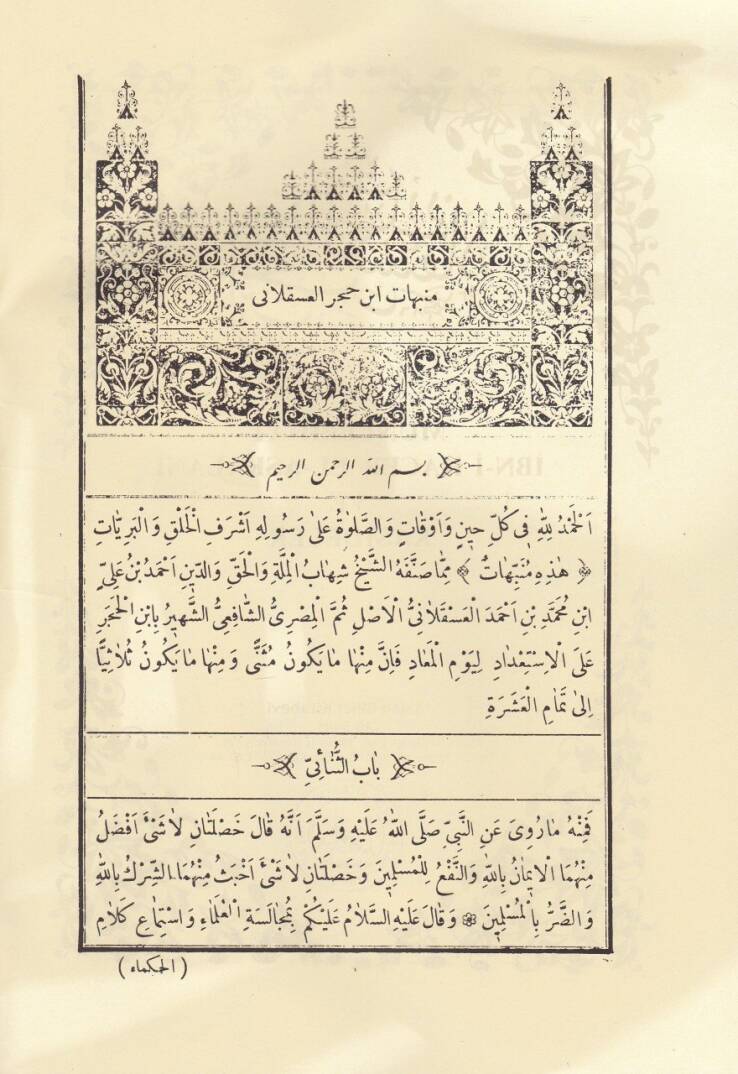 منبهات ابن حجر العسقلانى
بسم الله الرحمن الرحيم
اَلْحَمْدُ لِلّٰهِ فِى كُلِّ حِينٍ وَاَوْقَاتٍ وَالصَّلٰوةُ عَلٰى رَسُولِهِ اَشْرَفِ الْخَلْقِ وَالْبَرِيَّاتِ
﴿ هٰذِهِ مُنَبِّهَاتٌ ﴾ مِمَّا صَنَّفَهُ الشَّيْخُ شِهَابُ الْمِلَّةِ وَالْحَقِّ وَالدِّينِ اَحْمَدُ بْنُ عَلِىِّ
ابْنِ مُحَمَّدِ بْنِ اَحْمَدَ الْعَسْقَلَانِىُّ الْاَصْلِ ثُمَّ الْمِصْرِىُّ الشَّافِعِىُّ الشَّهِيرُ بِابْنِ الْحَجَرِ
عَلَى الْاِسْتِعْدَادِ لِيَوْمِ الْمَعَادِ فَاِنَّ مِنْهَا مَا يَكُونُ مُثَنًّى وَمِنْهَا مَا يَكُونُ ثُلَاثِيًّا
اِلٰى تَمَامِ الْعَشَرَةِ
بَابُ الثُّنَائِىِّ
فَمِنْهُ مَا رُوِىَ عَنِ النَّبِىِّ صَلَّى اللّٰهُ عَلَيْهِ وَسَلَّمَ اَنَّهُ قَالَ خَصْلَتَانِ لَا شَىْءَ اَفْضَلُ
مِنْهُمَا الْاِيمَانُ بِاللّٰهِ وَالنَّفْعُ لِلْمُسْلِمِينَ وَخَصْلَتَانِ لَا شَىْءَ اَخْبَثُ مِنْهُمَا الشِّرْكُ بِاللّٰهِ
وَالضَّرُّ بِالْمُسْلِمِينَ ۞ وَقَالَ عَلَيْهِ السَّلَامُ عَلَيْكُمْ بِمُجَالَسَةِ الْعُلَمَاءِ وَاسْتِمَاعِ كَلَامِ
( الحكماء )